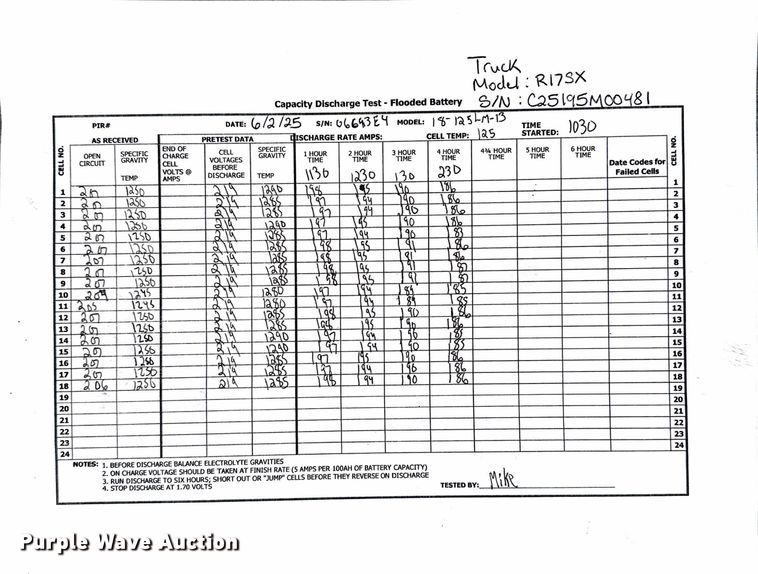 Truck
Model: R17SX
S/N: C25195M00481
Capacity Discharge Test - Flooded Battery
PIR# DATE: 6/2/25 S/N: MODEL: 18-125LM-13 TIME STARTED: 1030
AS RECEIVED PRETEST DATA DISCHARGE RATE AMPS: CELL TEMP: 125
CELL NO. OPEN CIRCUIT SPECIFIC GRAVITY TEMP END OF CHARGE CELL VOLTS @ AMPS CELL VOLTAGES BEFORE DISCHARGE SPECIFIC GRAVITY TEMP 1 HOUR TIME 2 HOUR TIME 3 HOUR TIME 4 HOUR TIME 4¾ HOUR TIME 5 HOUR TIME 6 HOUR TIME Date Codes for Failed Cells CELL NO.
1130 1230 130 230
1 1250 219 1290 198 190 186 1
2 1250 219 1285 197 194 190 186 2
3 1250 219 1285 197 194 190 186 3
4 207 1250 219 1290 197 195 190 186 4
5 207 1250 219 1285 197 194 190 187 5
6 207 1250 219 1285 198 195 191 186 6
7 207 1250 219 1285 198 195 191 7
8 207 1250 219 1285 198 195 191 187 8
9 207 1250 219 1285 198 195 191 187 9
10 204 1245 219 1280 197 194 189 185 10
11 205 1245 219 1280 197 194 189 185 11
12 207 1250 219 1285 198 195 190 186 12
13 207 1250 219 1285 198 195 190 186 13
14 207 1250 219 1290 197 194 190 185 14
15 207 1250 219 1290 197 194 190 185 15
16 207 1250 219 1285 197 195 190 186 16
17 207 1250 219 1285 197 194 190 186 17
18 206 1250 219 1285 198 194 190 186 18
19 19
20 20
21 21
22 22
23 23
24 24
NOTES: 1. BEFORE DISCHARGE BALANCE ELECTROLYTE GRAVITIES
2. ON CHARGE VOLTAGE SHOULD BE TAKEN AT FINISH RATE (5 AMPS PER 100AH OF BATTERY CAPACITY)
3. RUN DISCHARGE TO SIX HOURS; SHORT OUT OR "JUMP" CELLS BEFORE THEY REVERSE ON DISCHARGE
4. STOP DISCHARGE AT 1.70 VOLTS
TESTED BY: Mike
Purple Wave Auction